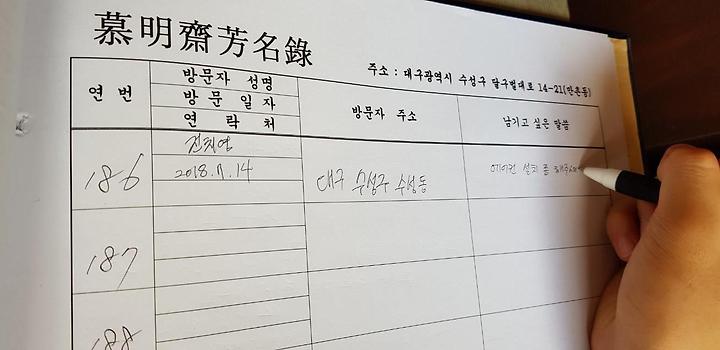 慕明齋芳名錄
주소 : 대구광역시 수성구 달구벌대로 14-21(만촌동)
연 번
방문자 성명
방 문 일 자
연 락 처
방문자 주소
남기고 싶은 말씀
186
2018.7.14
대구 수성구 수성동
에어컨 설치 좀
187
188